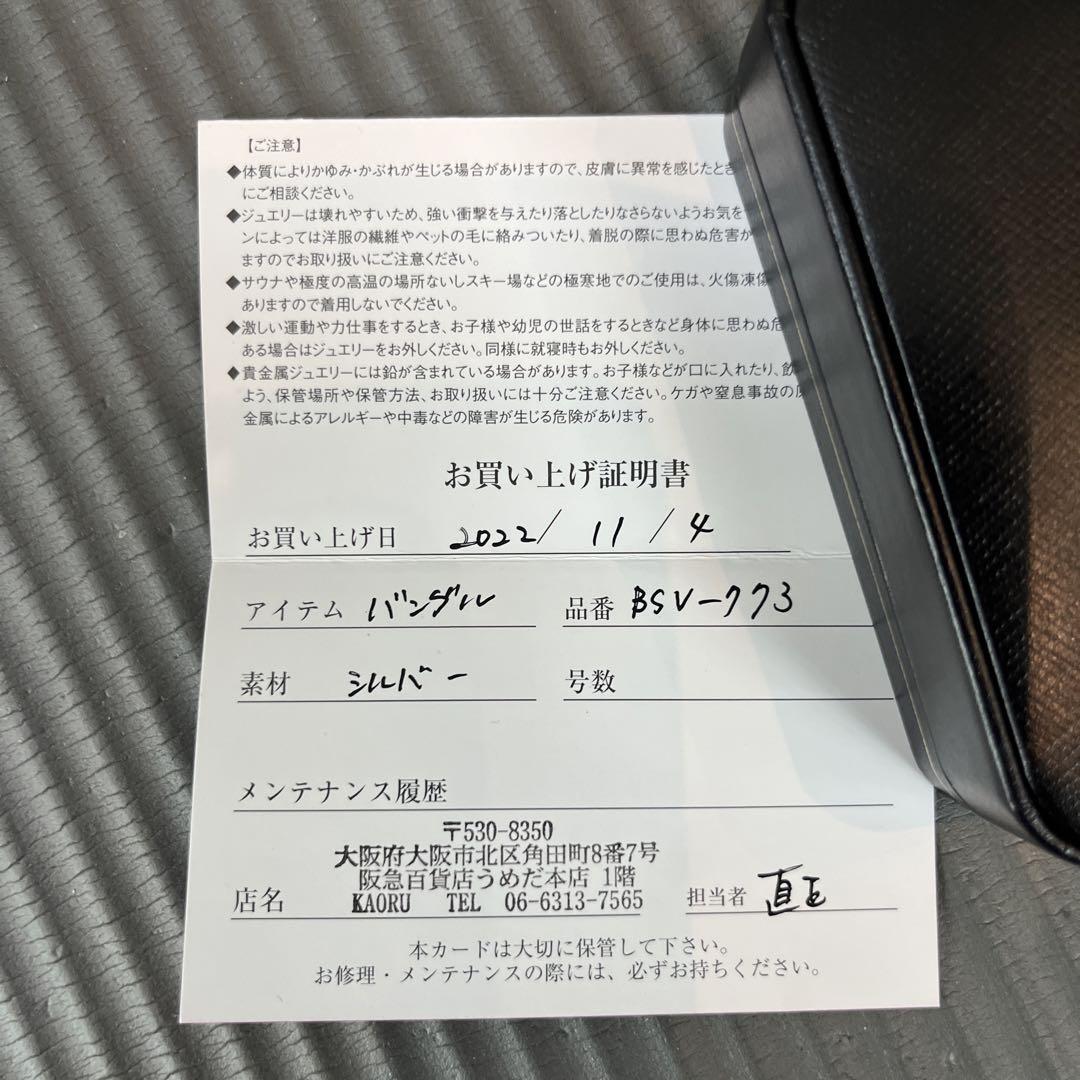 【ご注意】
◆体質によりかゆみ・かぶれが生じる場合がありますので、皮膚に異常を感じたとき
にご相談ください。
◆ジュエリーは壊れやすいため、強い衝撃を与えたり落としたりなさらないようお気を
ンによっては洋服の繊維やペットの毛に絡みついたり、着脱の際に思わぬ危害が
ますのでお取り扱いにご注意ください。
◆サウナや極度の高温の場所ないしスキー場などの極寒地でのご使用は、火傷凍傷
ありますので着用しないでください。
◆激しい運動や力仕事をするとき、お子様や幼児の世話をするときなど身体に思わぬ危
ある場合はジュエリーをお外しください。同様に就寝時もお外しください。
◆貴金属ジュエリーには鉛が含まれている場合があります。お子様などが口に入れたり、飲
よう、保管場所や保管方法、お取り扱いには十分ご注意ください。ケガや窒息事故の原
金属によるアレルギーや中毒などの障害が生じる危険があります。
お買い上げ証明書
お買い上げ日 2022/11/4
アイテム バングル 品番 BSV-773
素材 シルバー 号数
メンテナンス履歴
〒530-8350
大阪府大阪市北区角田町8番7号
阪急百貨店うめだ本店 1階
店名 KAORU TEL 06-6313-7565 担当者
本カードは大切に保管して下さい。
お修理・メンテナンスの際には、必ずお持ちください。